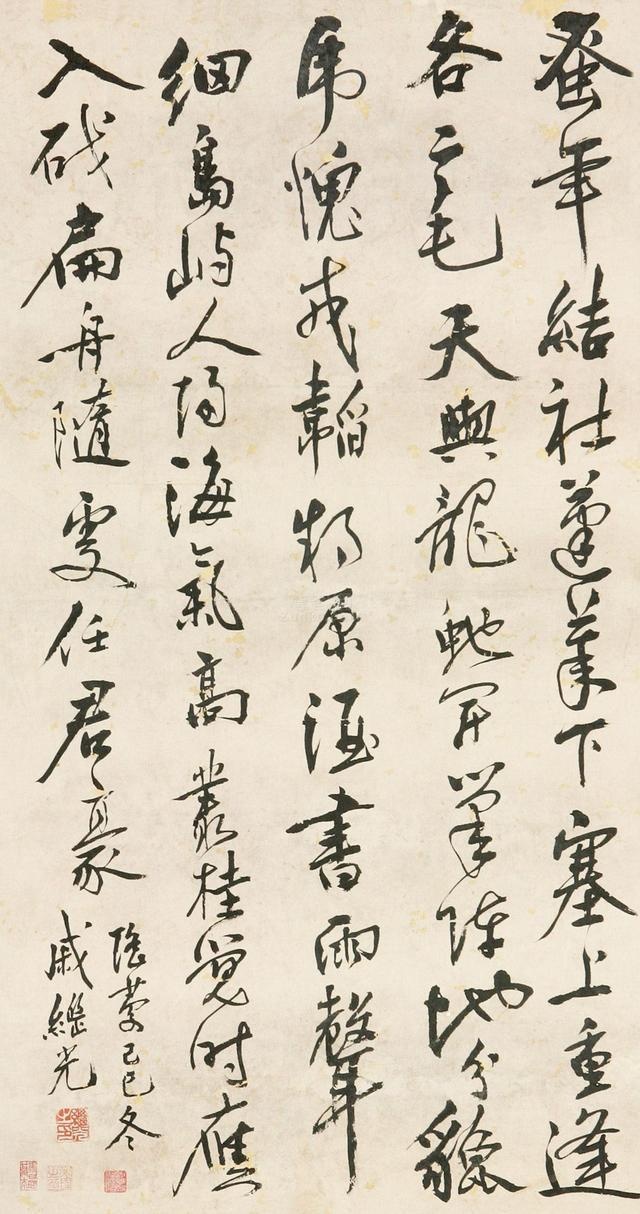 蚤年結社蓬萊下塞上重逢
各二毛天與龍蛇開筆陣地分貔
虎愧戎韜原書雨聲
細島嶼人歸海氣高叢桂覓時應
入硤扁舟隨處任君豪
隆慶己巳冬
戚繼光